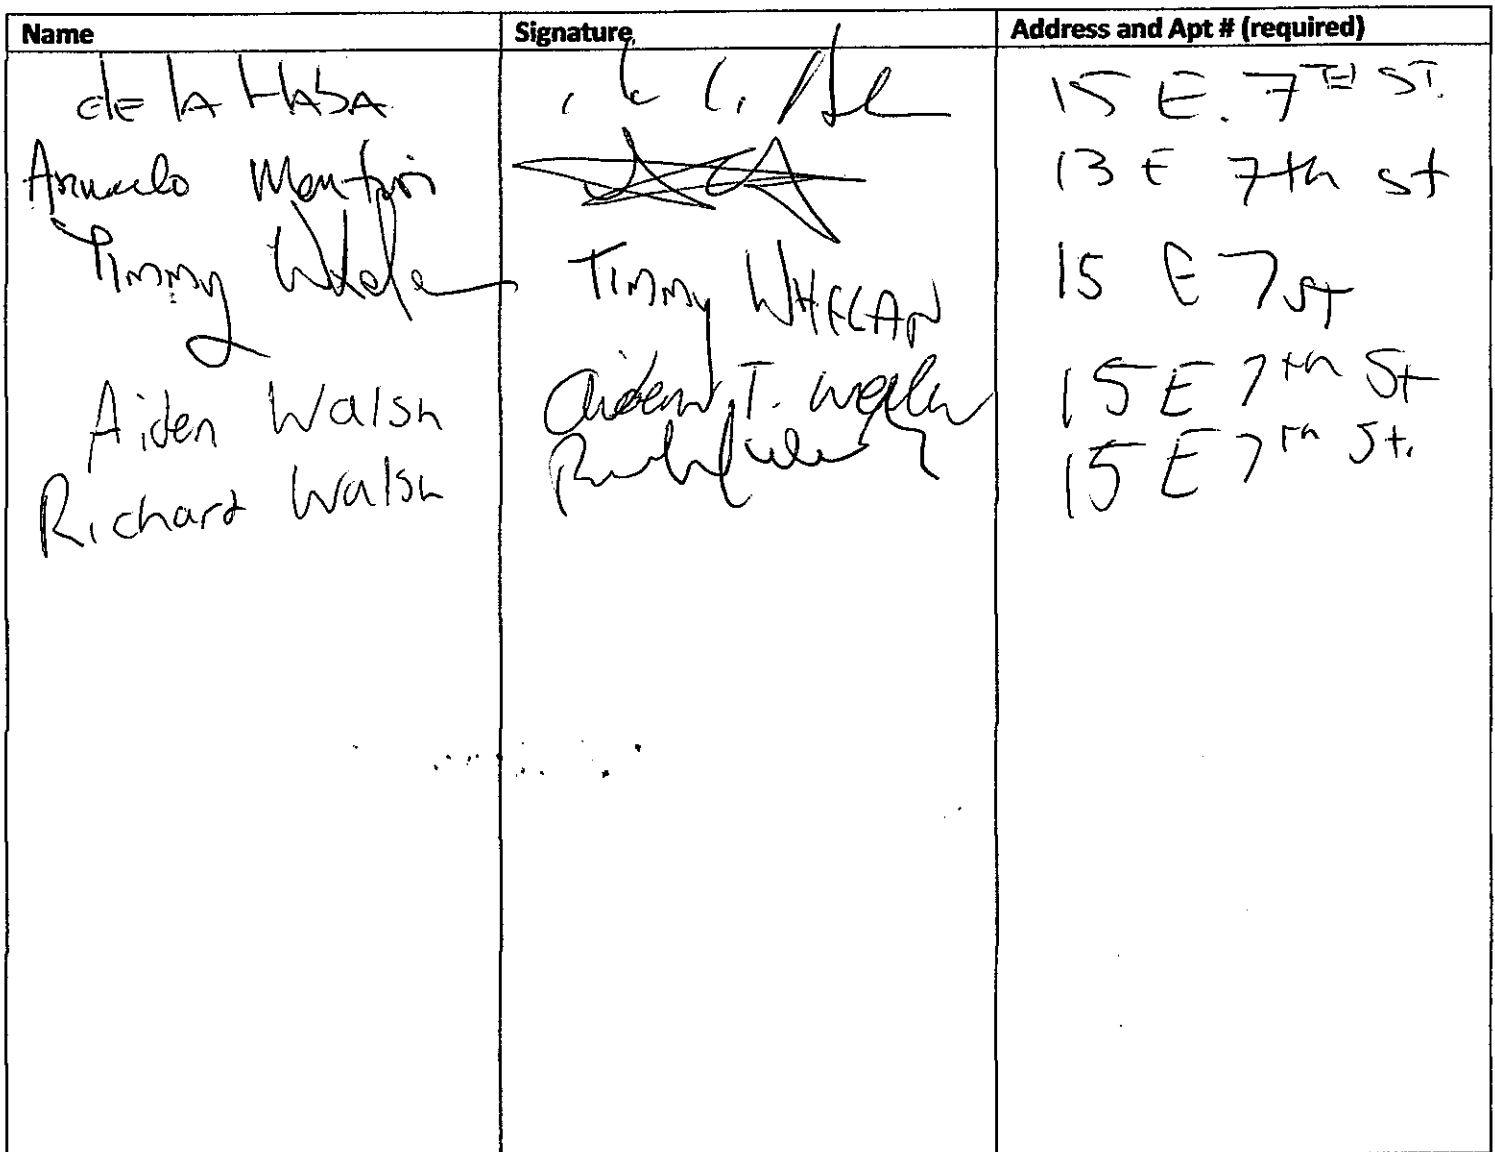 Name Signature Address and Apt # (required)
de la HABA 15 E. 7TH ST.
13 E 7th st
Timmy Whelan Timmy WHELAN 15 E 7 ST
Aiden Walsh Aiden T. Walsh 15 E 7th St
Richard Walsh 15 E 7th St.